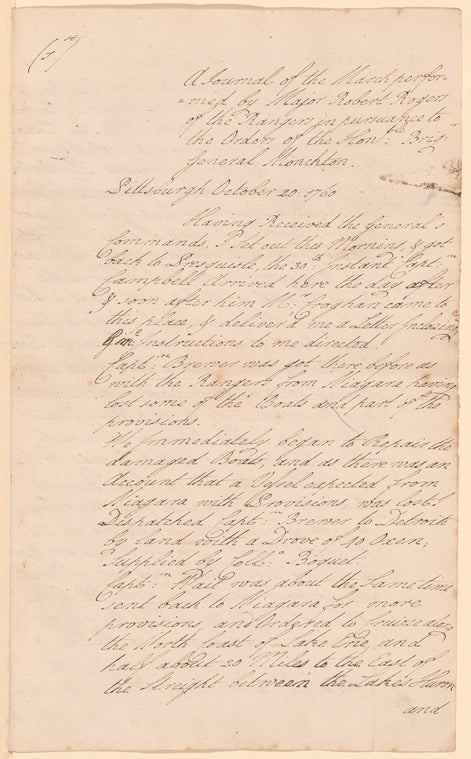 (1st)
A Journal of the March perfor=
=med by Major Robert Rogers
of the Rangers in pursuance to
the Orders of the Honble: Brigr
General Monckton.
Pittsburgh October 20. 1760
Having Received the General's
Commands, I set out this Morning, & got
back to Presquisle, the 30th: Instant Captn:
Campbell Arrived here the day after
& soon after him Mr Croghan came to
this place, & deliver'd me a Letter Inclosing
Instructions to me directed.
Captn: Brewer was got there before us
with the Rangers from Niagara having
lost some of the Boats and part of the
provisions.
We Immediately began to Repair the
damaged Boats, and as there was an
Account that a Vessel expected from
Niagara with Provisions, was lost I
Dispatched Captn: Brewer to Detroit
by land with a Drove of 40 Oxen,
Supplied by Collo: Boquet.
Captn: Wait was about the Same time
sent back to Niagara for more
provisions, and Ordered to Cruize along
the North Coast of Lake Erie, and
halt about 20 Miles to the East of
the Streight between the Lakes Huron
and